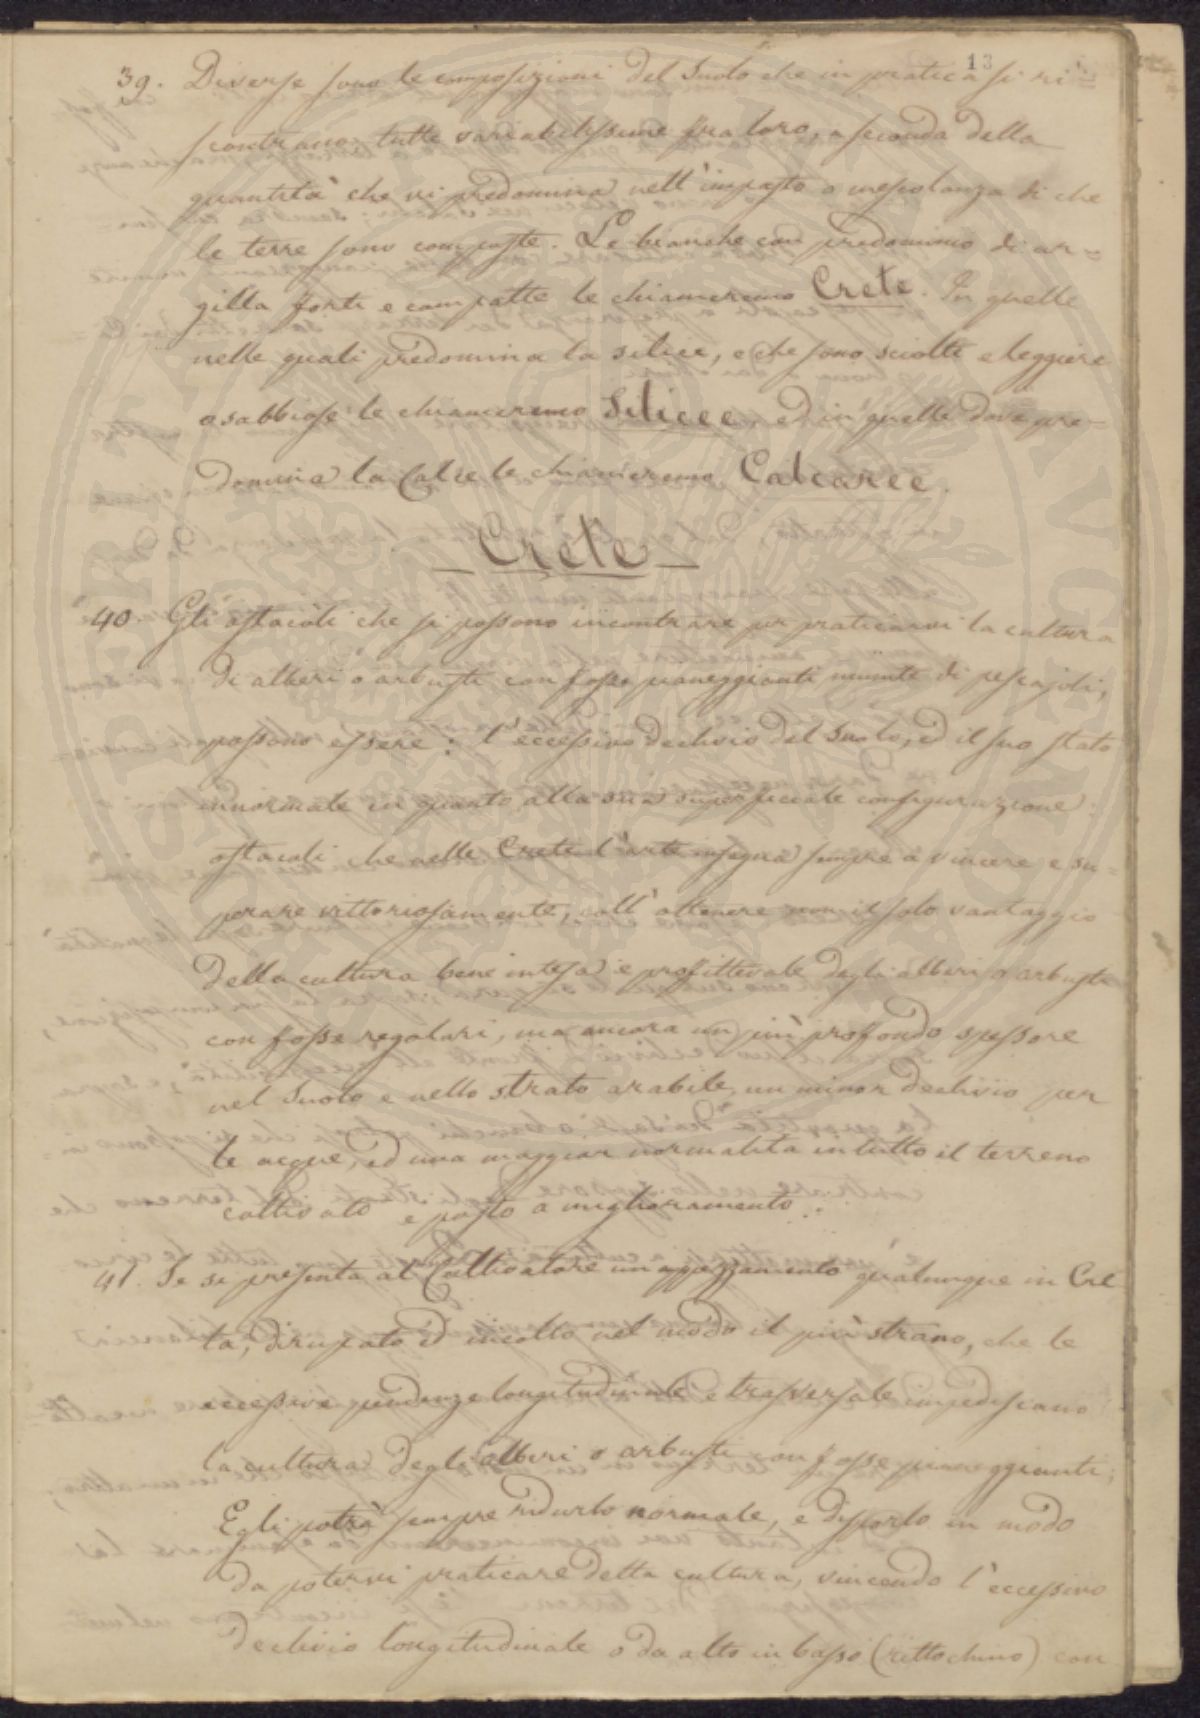 13
39. Diverse sono le composizioni del Suolo che in pratica si ri=
scontrano, tutte variabilissime fra loro, a seconda della
quantità che vi predomina nell'impasto o mescolanza di che
le terre sono composte. Le bianche con predominio di ar=
gilla forti e compatte le chiameremo Crete. In quelle
nelle quali predomina la silice, e che sono sciolte e leggiere
o sabbiose le chiameremo Silicee, ed in quelle dove pre=
domina la Calce le chiameremo Calcaree.
— Crete —
40. Gli ostacoli che si possono incontrare per praticarvi la cultura
di alberi o arbusti con fosse pianeggianti munite di pescajoli,
possono essere: l'eccessivo declivio del Suolo, ed il suo stato
innormale in quanto alla sua superficiale configurazione:
ostacoli che nelle Crete l'arte insegna sempre a vincere e su=
perare vittoriosamente, coll'ottenere non il solo vantaggio
della cultura bene intesa e profittevole degli alberi o arbusti
con fosse regolari, ma ancora un più profondo spessore
nel Suolo e nello strato arabile, un minor declivio per
le acque, ed una maggior normalità in tutto il terreno
coltivato e posto a miglioramento.
41. Se si presenta al Cultivatore un appezzamento qualunque in Cre
ta, dirupato ed incolto nel modo il più strano, che le
eccessive pendenze longitudinale e trasversale impediscano
la cultura degli alberi o arbusti con fosse pianeggianti;
Egli potrà sempre ridurlo normale, e disporlo in modo
da potervi praticare detta cultura, vincendo l'eccessivo
declivio longitudinale o da alto in basso (rittochino) con